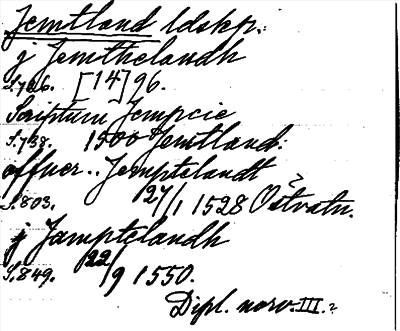 Jemtland ldskp.
j Jemthelandh
S.786. [14]96.
Scriptum Jempcie
S.738. 1500 Jemtland:
offuer .. Jemptelandt
S.803. 27/1 1528 Östvatn.
j Jamptelandh
S.849. 22/9 1550.
Dipl. norv. III.2